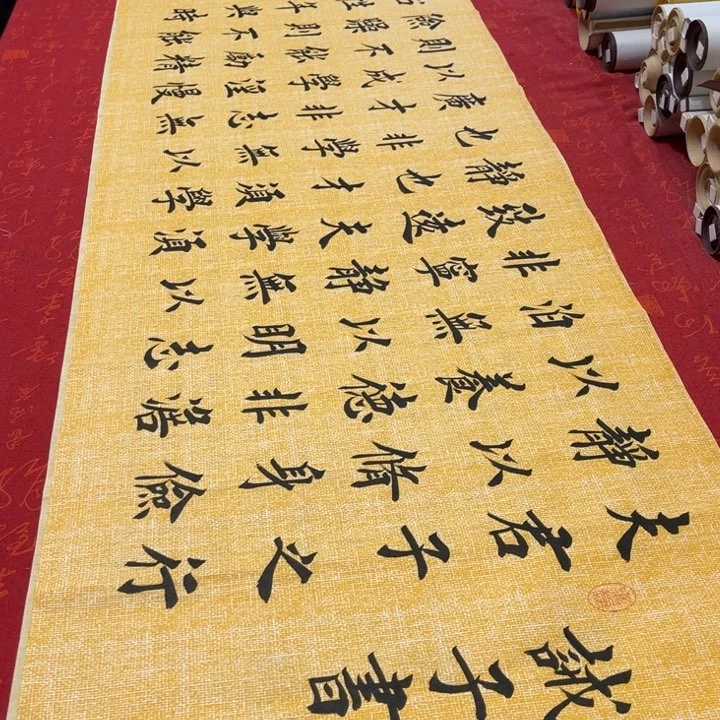 誡子書
夫君子之行
静以修身儉
以養德非澹
泊無以明志
非寧静無以
致遠夫學須
静也才須學
也非學無以
廣才非志無
以成學淫慢
則不能勵精
險躁則不能
性年與時